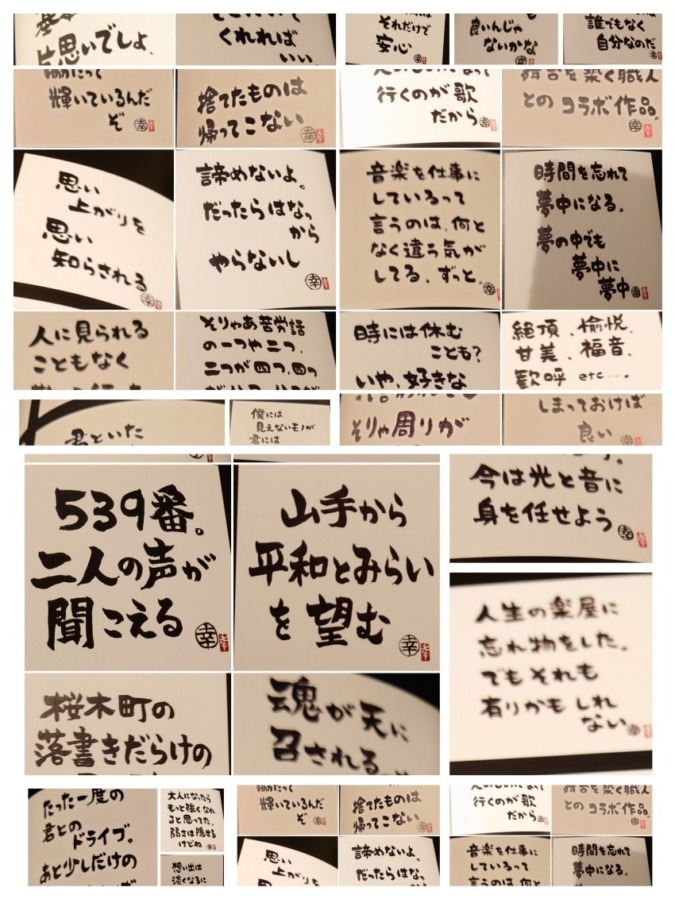 片思いでしょ、
くれれば
いい
それだけで
安心
良いんじゃ
ないかな
誰でもなく
自分なのだ
輝いているんだ
ぞ
幸
捨てたものは
帰ってこない
幸
行くのが歌
だから
幸
舞台を築く職人
との コラボ作品。
幸
思い
上がりを
思い
知らされる
幸
諦めないよ。
だったらはなっ
から
やらないし
幸
音楽を仕事に
しているって
言うのは、何と
なく違う気が
してる、ずっと。
幸
時間を忘れて
夢中になる。
夢の中でも
夢中に
夢中
幸
人に見られる
こともなく
そりゃあ苦労話
の一つや二つ、
二つが四つ、四つ
時には休む
ことも?
いや、好きな
絶頂、愉悦、
甘美、福音、
歓呼 etc....
君といた
僕には
見えないモノが
君には
そりゃ周りが
しまっておけば
良い
539番。
二人の声が
聞こえる
幸
山手から
平和とみらい
を望む
幸
今は光と音に
身を任せよう
幸
人生の楽屋に
忘れ物をした。
でもそれも
有りかもしれ
ない
幸
桜木町の
落書きだらけの
魂が天に
召される
たった一度の
君との
ドライブ。
あと少しだけの
大人になったら
もっと強くなれ
ると思ってた。
弱さは隠せる
けどね
想い出は
淡くなるに
輝いているんだ
ぞ
捨てたものは
帰ってこない
行くのが歌
だから
舞台を築く職人
との コラボ作品。
思い
上がりを
諦めないよ。
だったらはなっ
音楽を仕事に
しているって
言うのは、何と
時間を忘れて
夢中になる。